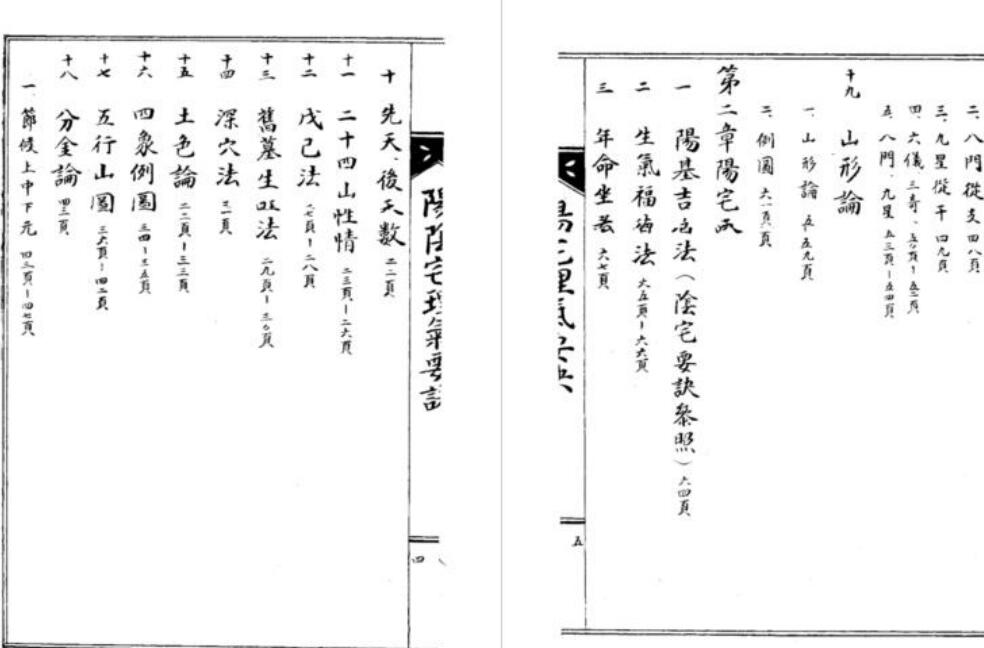 陽陰宅理氣要訣
十 先天、後天數 二二頁
十一 二十四山性情 二三頁-二六頁
十二 戊己法 二七頁-二八頁
十三 舊墓生旺法 二九頁-三〇頁
十四 深穴法 三一頁
十五 土色論 三二頁-三三頁
十六 四象例圖 三四-三五頁
十七 五行山圖 三六頁-四二頁
十八 分金論 四三頁
一、節候上中下元 四三頁-四七頁
四
二、八門從支 四八頁
三、九星從干 四九頁
四、六儀、三奇、五〇頁-五二頁
五、八門、九星 五三頁-五四頁
十九 山形論
一、山形論 五九頁
二、例圖 六一頁
第二章陽宅
一 陽基吉凶法（陰宅要訣參照）六四頁
二 生氣福德法 六五頁-六六頁
三 年命坐 六七頁
五